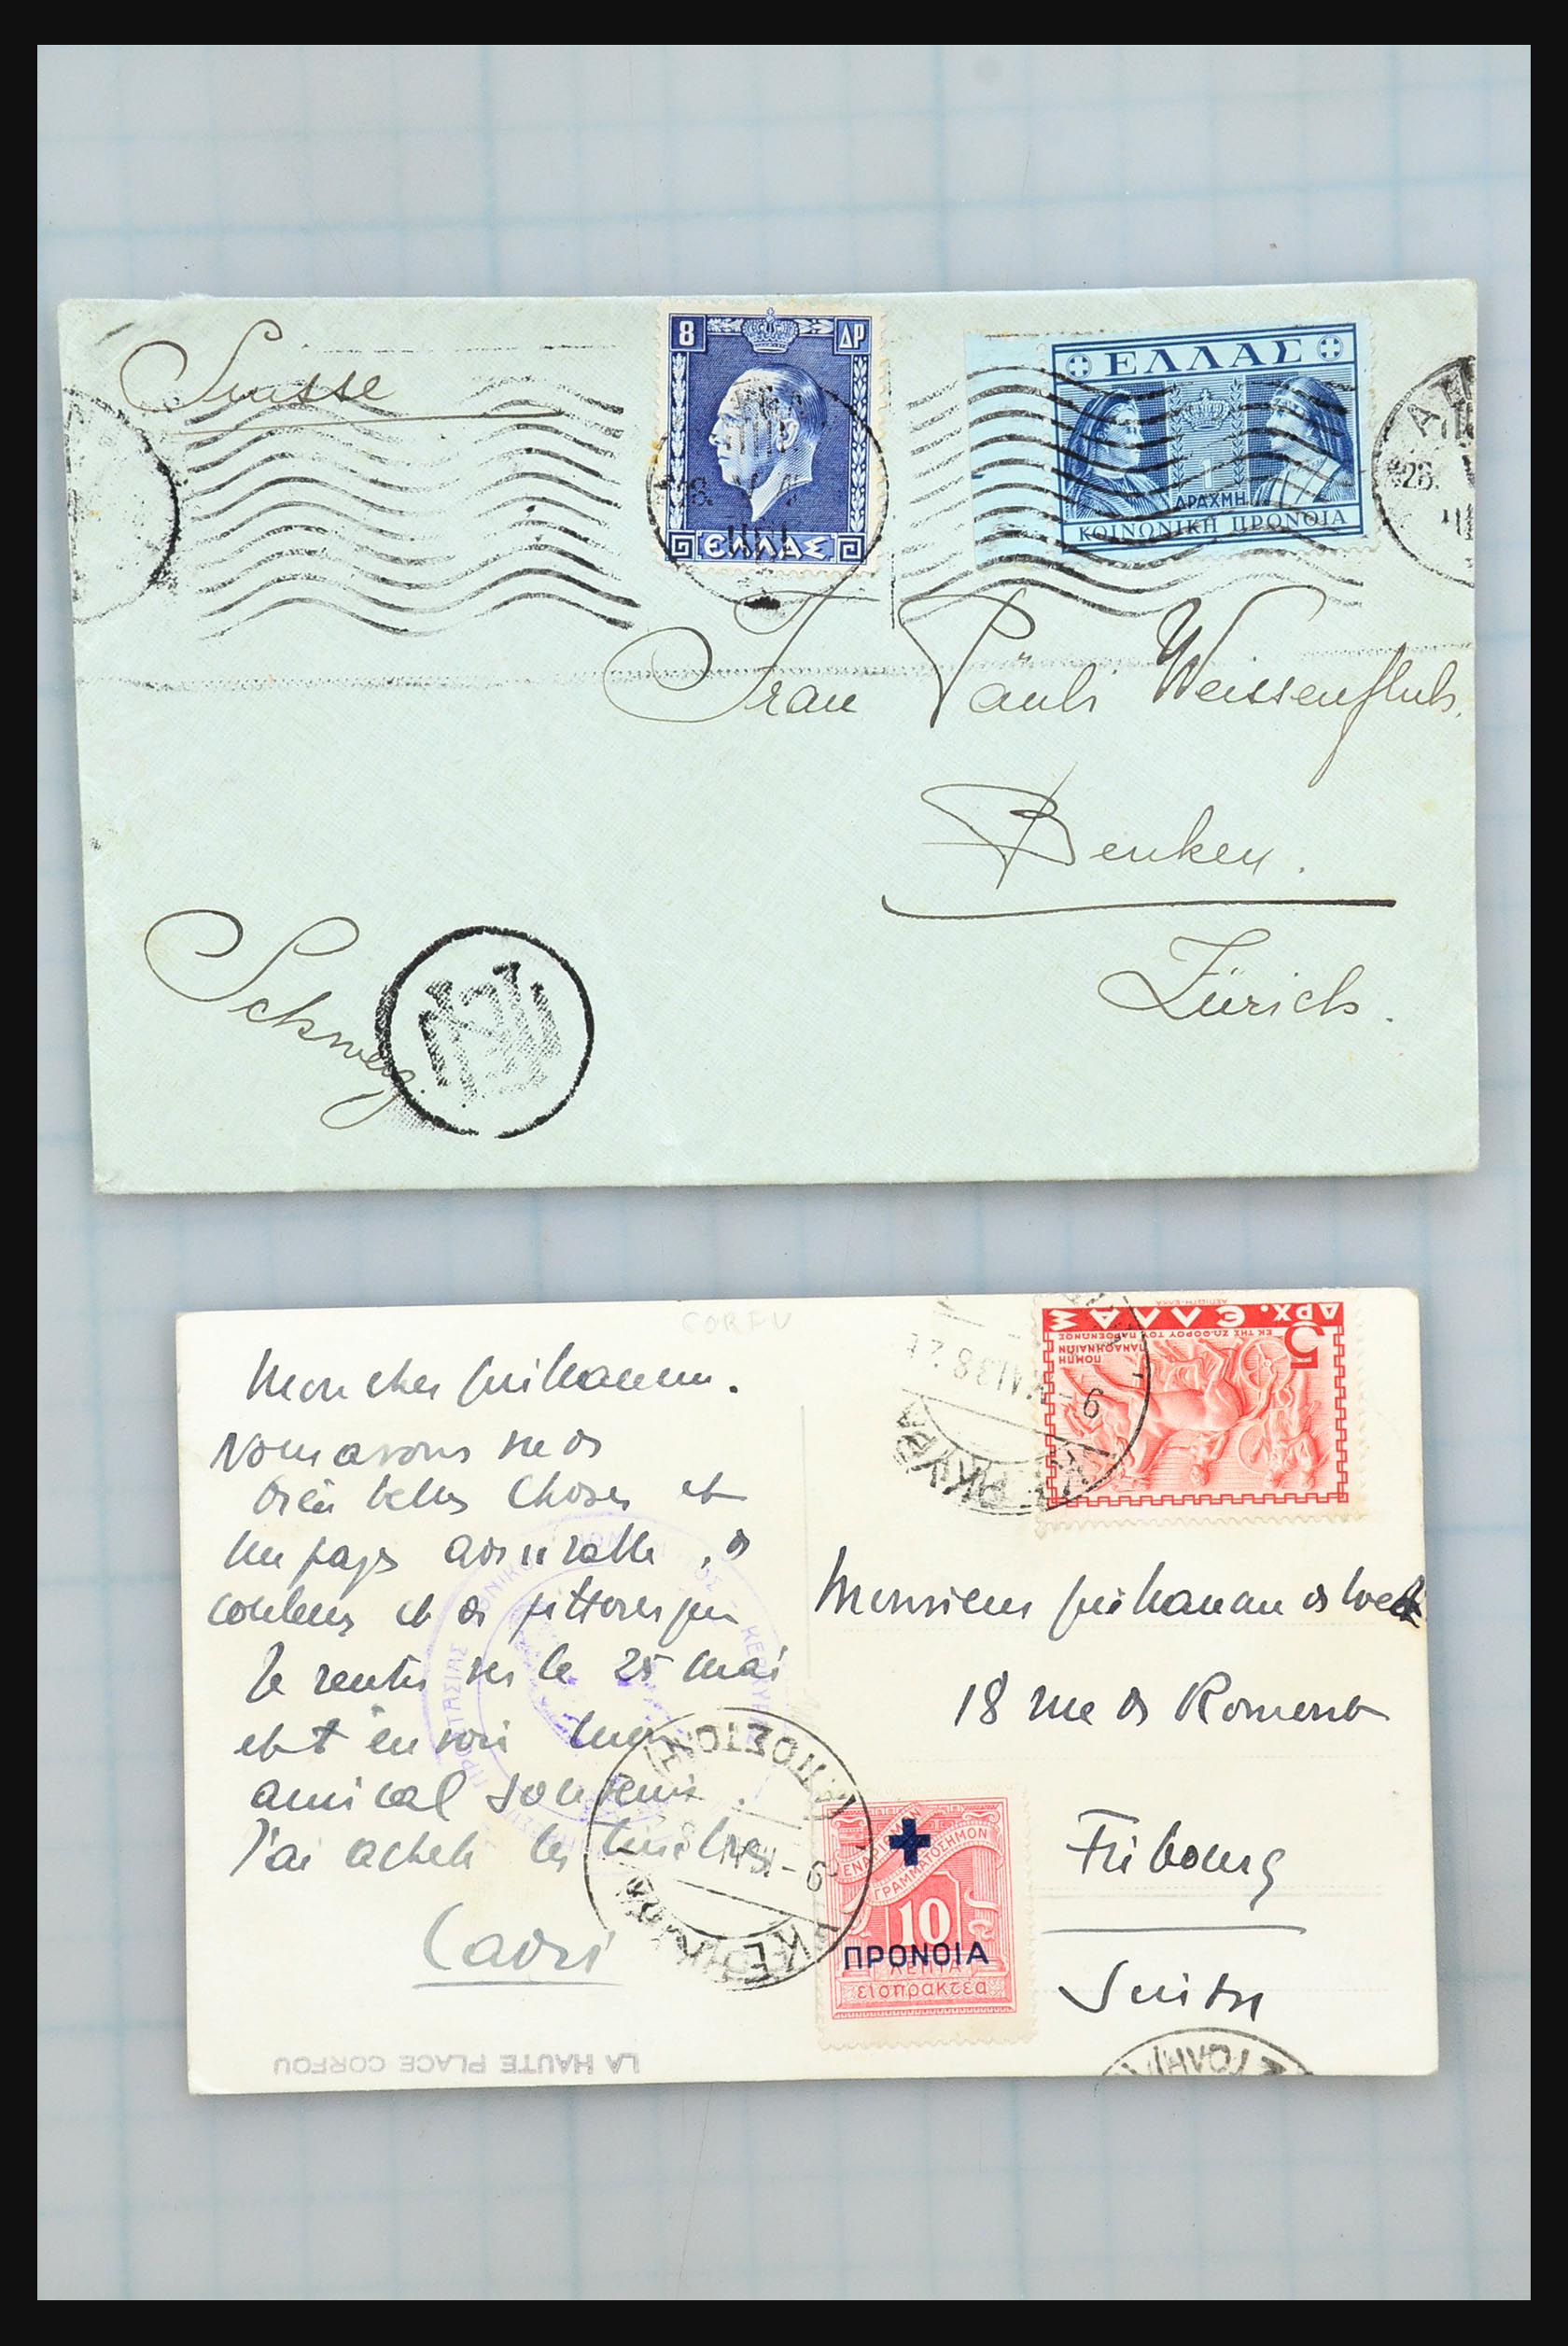 Suisse
8 ΔΡ
ΕΛΛΑΣ
ΕΛΛΑΣ
1
ΔΡΑΧΜΗ
ΚΟΙΝΩΝΙΚΗ ΠΡΟΝΟΙΑ
Frau Päuli Weissenfluh.
Benken.
Zürich.
Schweiz.
CORFU
Mon cher
Nous avons vu de
bien belles choses et
un pays admirable, de
couleurs et de pittoresque
Je rentre vers le 25 mai
amical souvenir.
J'ai acheté les timbres
LA HAUTE PLACE CORFOU
5 ΔΡΧ. ΕΛΛΑΣ
ΠΟΜΠΗ
ΠΑΝΑΘΗΝΑΙΩΝ
ΕΚ ΤΗΣ ΖΩΦΟΡΟΥ ΤΟΥ ΠΑΡΘΕΝΩΝΟΣ
ΚΕΡΚΥΡΑ
Monsieur de Weck
18 rue de Romont
Fribourg
Suisse
ΕΝΑΡΙΘΜΟΝ
ΓΡΑΜΜΑΤΟΣΗΜΟΝ
10
ΠΡΟΝΟΙΑ
ΛΕΠΤΑ
εισπρακτεα
ΚΕΡΚΥΡΑ